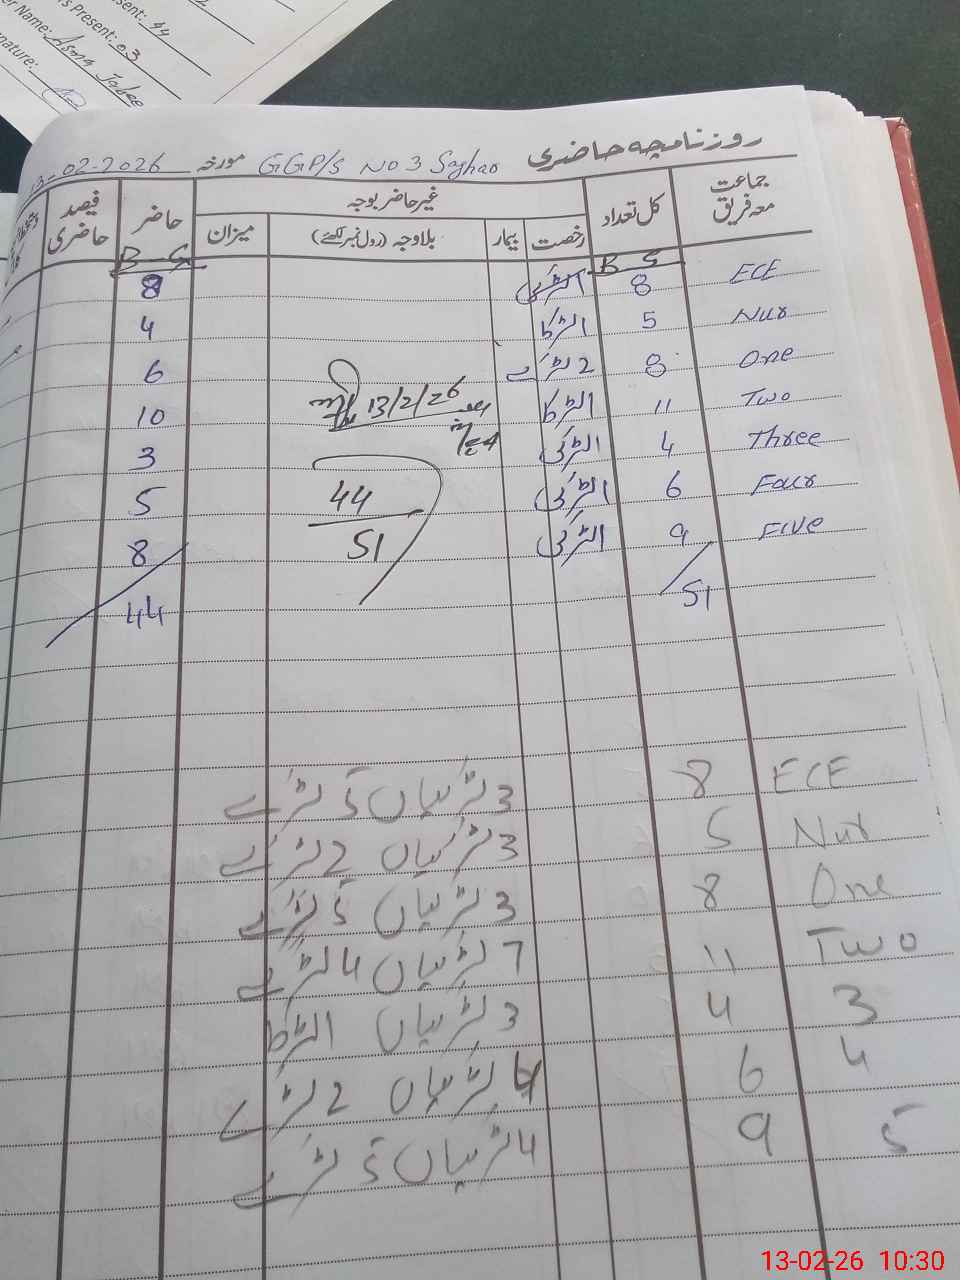 esent: 44
s Present: 03
er Name: Asma Jabee
nature:
روزنامچہ حاضری GGP/S No 3 Saghar مورخہ 13-02-2026
جماعت معہ فریق کل تعداد غیر حاضر بوجہ حاضر فیصد حاضری
رخصت بیمار بلاوجہ (رول نمبر لکھئے) میزان
B G B G
ECE 8 1لڑکی 8
Nur 5 1لڑکا 4
One 8 2لڑکے 6
Two 11 1لڑکا 10
13/2/26
Three 4 1لڑکی 3
Four 6 1لڑکی 5
44
Five 9 1لڑکی 8
51
51 44
ECE 8 3لڑکیاں 5 لڑکے
Nur 5 3لڑکیاں 2 لڑکے
One 8 3لڑکیاں 5 لڑکے
Two 11 7لڑکیاں 4لڑکے
3 4 3لڑکیاں 1لڑکا
4 6 4لڑکیاں 2 لڑکے
5 9 4لڑکیاں 5 لڑکے
13-02-26 10:30